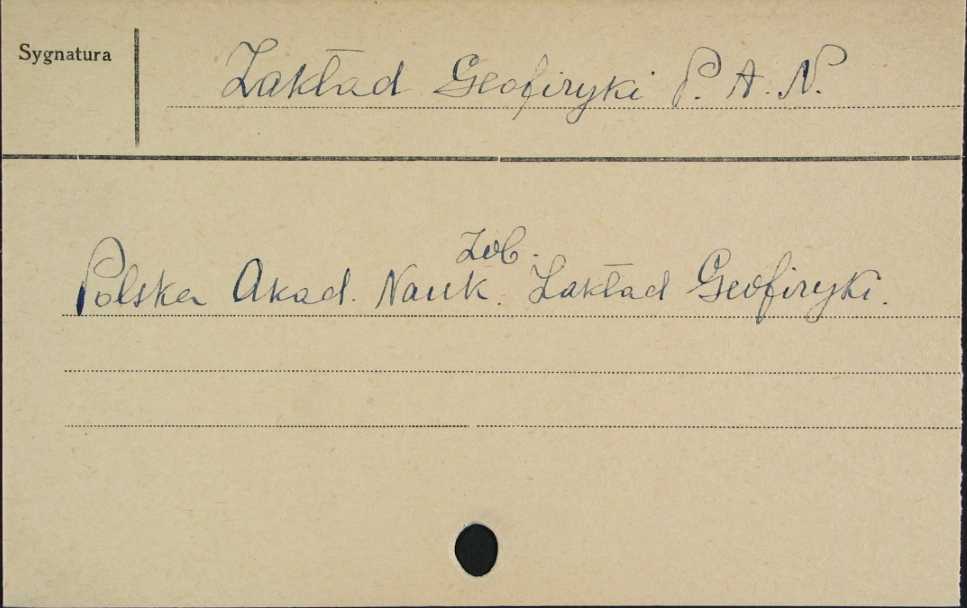 Sygnatura
Zakład Geofizyki P. A. N.
Zob.
Polska Akad. Nauk. Zakład Geofizyki.